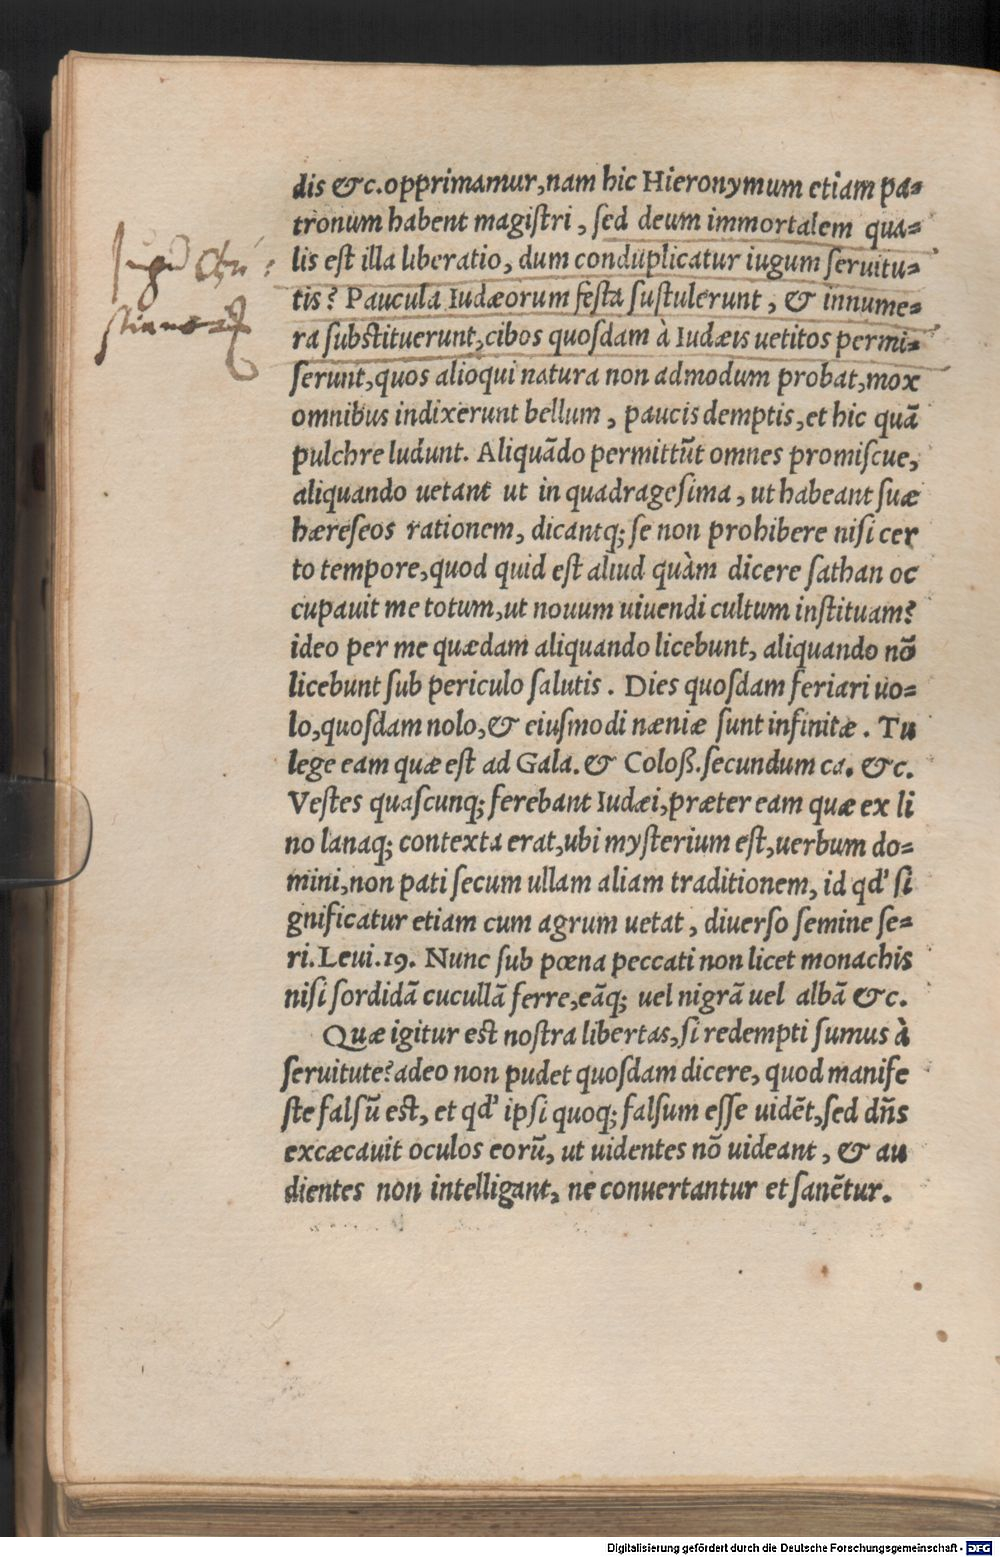 dis &c. opprimamur, nam hic Hieronymum etiam pa-
tronum habent magiſtri, ſed deum immortalem qua-
lis eſt illa liberatio, dum conduplicatur iugum ſeruitu-
tis? Paucula Iudæorum feſta ſuſtulerunt, & innume-
ra ſubſtituerunt, cibos quoſdam à Iudæis uetitos permi-
ſerunt, quos alioqui natura non admodum probat, mox
omnibus indixerunt bellum, paucis demptis, et hic quã
pulchre ludunt. Aliquãdo permittũt omnes promiſcue,
aliquando uetant ut in quadrageſima, ut habeant ſuæ
hæreſeos rationem, dicantq; ſe non prohibere niſi cer
to tempore, quod quid eſt aliud quàm dicere ſathan oc
cupauit me totum, ut nouum uiuendi cultum inſtituam?
ideo per me quædam aliquando licebunt, aliquando nõ
licebunt ſub periculo ſalutis. Dies quoſdam feriari uo-
lo, quoſdam nolo, & eiuſmodi næniæ ſunt infinitæ. Tu
lege eam quæ eſt ad Gala. & Coloſſ. ſecundum ca. &c.
Veſtes quaſcunq; ferebant Iudæi, præter eam quæ ex li
no lanaq; contexta erat, ubi myſterium eſt, uerbum do-
mini, non pati ſecum ullam aliam traditionem, id qd' ſi
gnificatur etiam cum agrum uetat, diuerſo ſemine ſe-
ri. Leui. 19. Nunc ſub pœna peccati non licet monachis
niſi ſordidã cucullã ferre, eãq; uel nigrã uel albã &c.
Quæ igitur eſt noſtra libertas, ſi redempti ſumus à
ſeruitute? adeo non pudet quoſdam dicere, quod manife
ſte falſũ eſt, et qd' ipſi quoq; falſum eſſe uidẽt, ſed dñs
excæcauit oculos eorũ, ut uidentes nõ uideant, & au
dientes non intelligant, ne conuertantur et ſanẽtur.
Digitalisierung gefördert durch die Deutsche Forschungsgemeinschaft - DFG